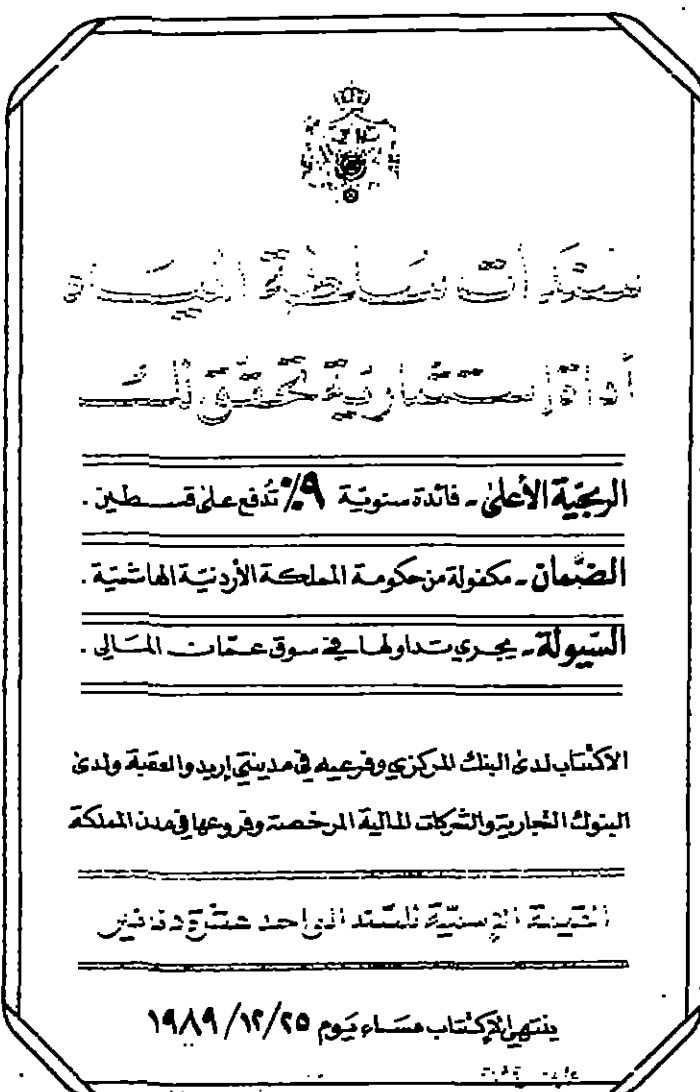 سندات سلطة المياه
أداة استثمارية تحقق لك
الربحية الأعلى - فائدة سنوية ٩٪ تُدفع على قسطين .
الضمان - مكفولة من حكومة المملكة الأردنية الهاشمية .
السيولة - يجري تداولها في سوق عمّان المالي .
الاكتتاب لدى البنك المركزي وفرعيه في مدينتي إربد والعقبة ولدى
البنوك التجارية والشركات المالية المرخصة وفروعها في مدن المملكة
القيمة الإسمية للسند الواحد عشرة دنانير
ينتهي الإكتتاب مساء يوم ١٩٨٩/١٢/٢٥